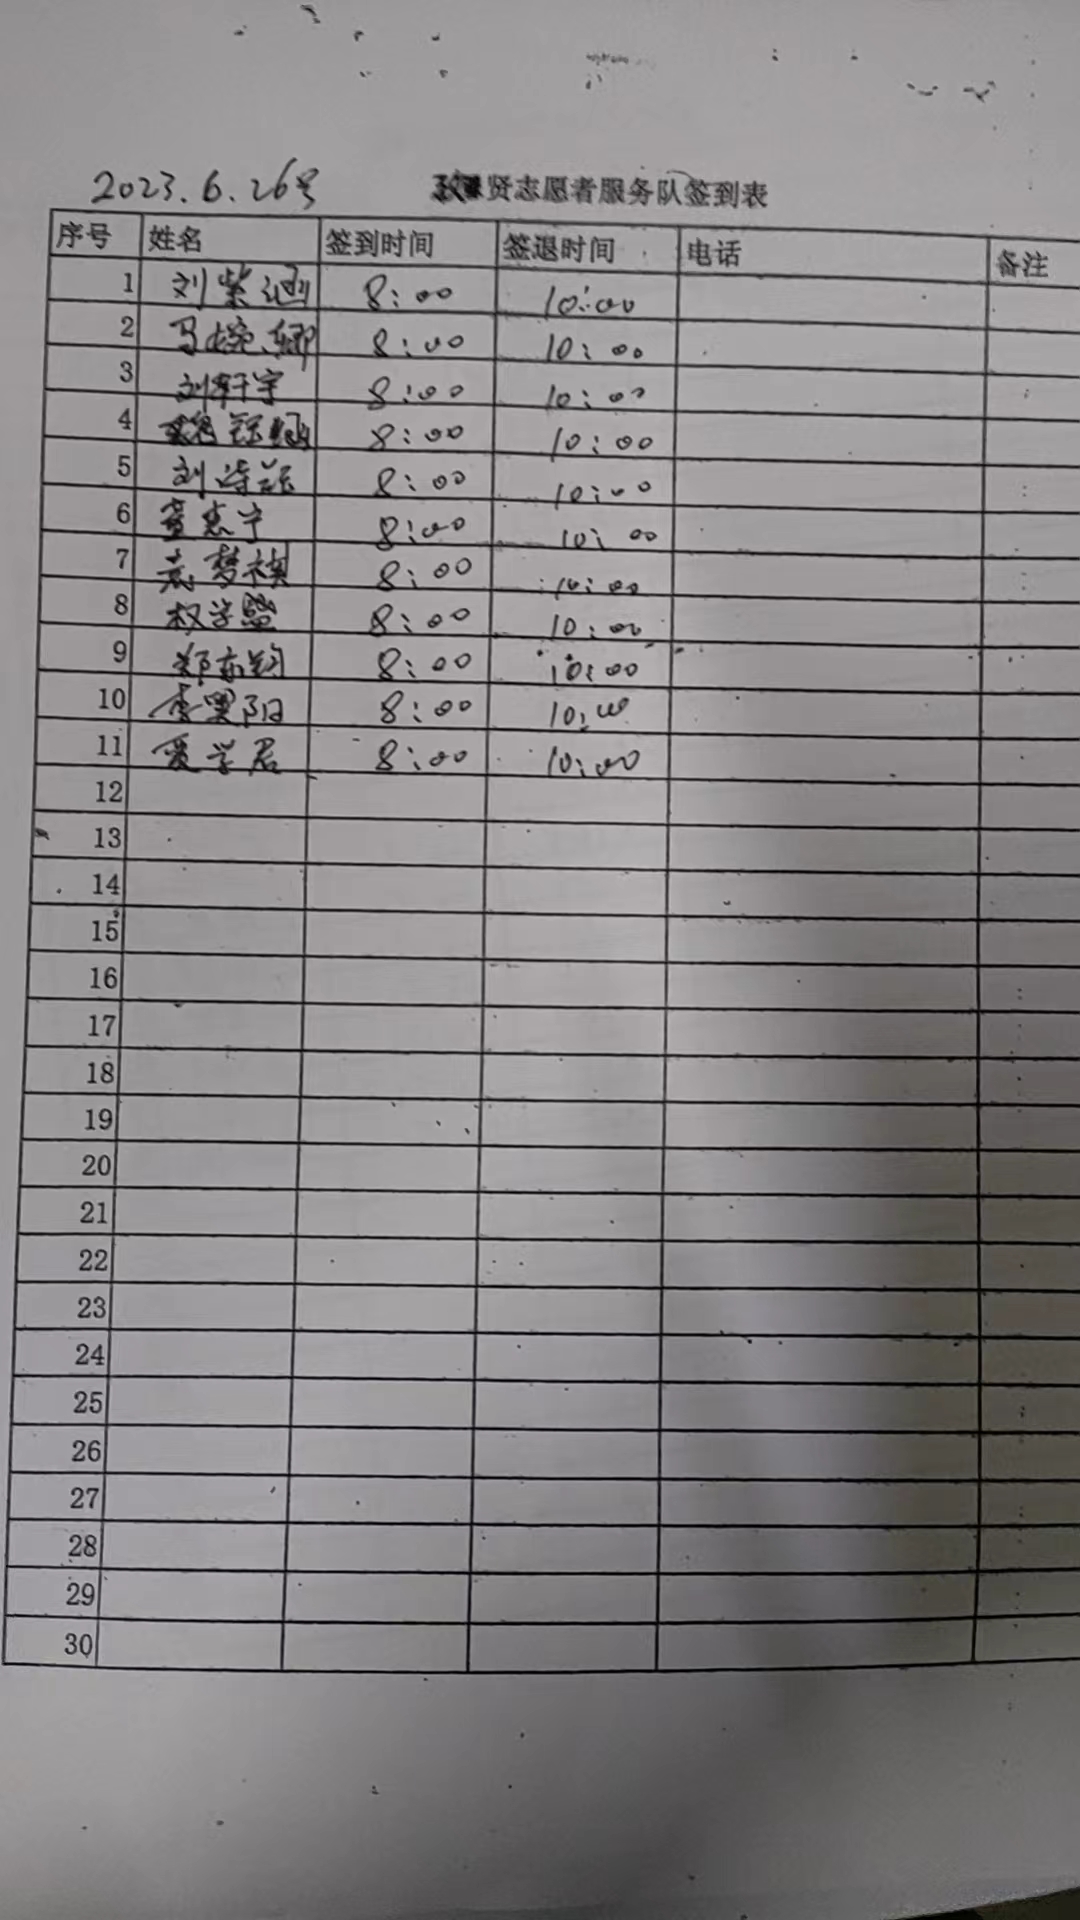 2023.6.26号
贤志愿者服务队签到表
序号 姓名 签到时间 签退时间 电话 备注
1 刘紫涵 8:00 10:00
2 马婉卿 8:00 10:00
3 刘轩宇 8:00 10:00
4 8:00 10:00
5 刘诗 8:00 10:00
6 宁 8:00 10:00
7 袁梦祺 8:00 10:00
8 权学 8:00 10:00
9 郑东钧 8:00 10:00
10 李昊阳 8:00 10:00
11 学君 8:00 10:00
12
13
14
15
16
17
18
19
20
21
22
23
24
25
26
27
28
29
30